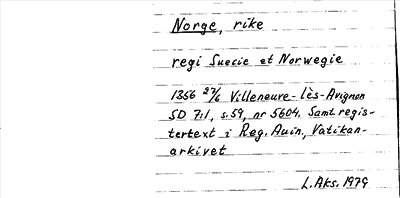 Norge, rike
regi Suecie et Norwegie
1356 27/6 Villeneuve-lès-Avignon
SD 7:1, s.59, nr 5604. Samt regis-
tertext i Reg. Avin, Vatikan-
arkivet
L.Aks. 1979